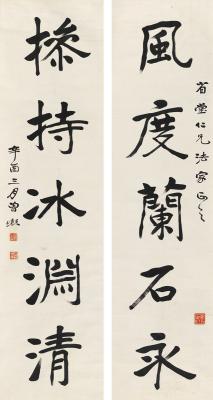 省堂仁兄法家正之
風度蘭石永
操持冰淵清
辛酉三月曾熙